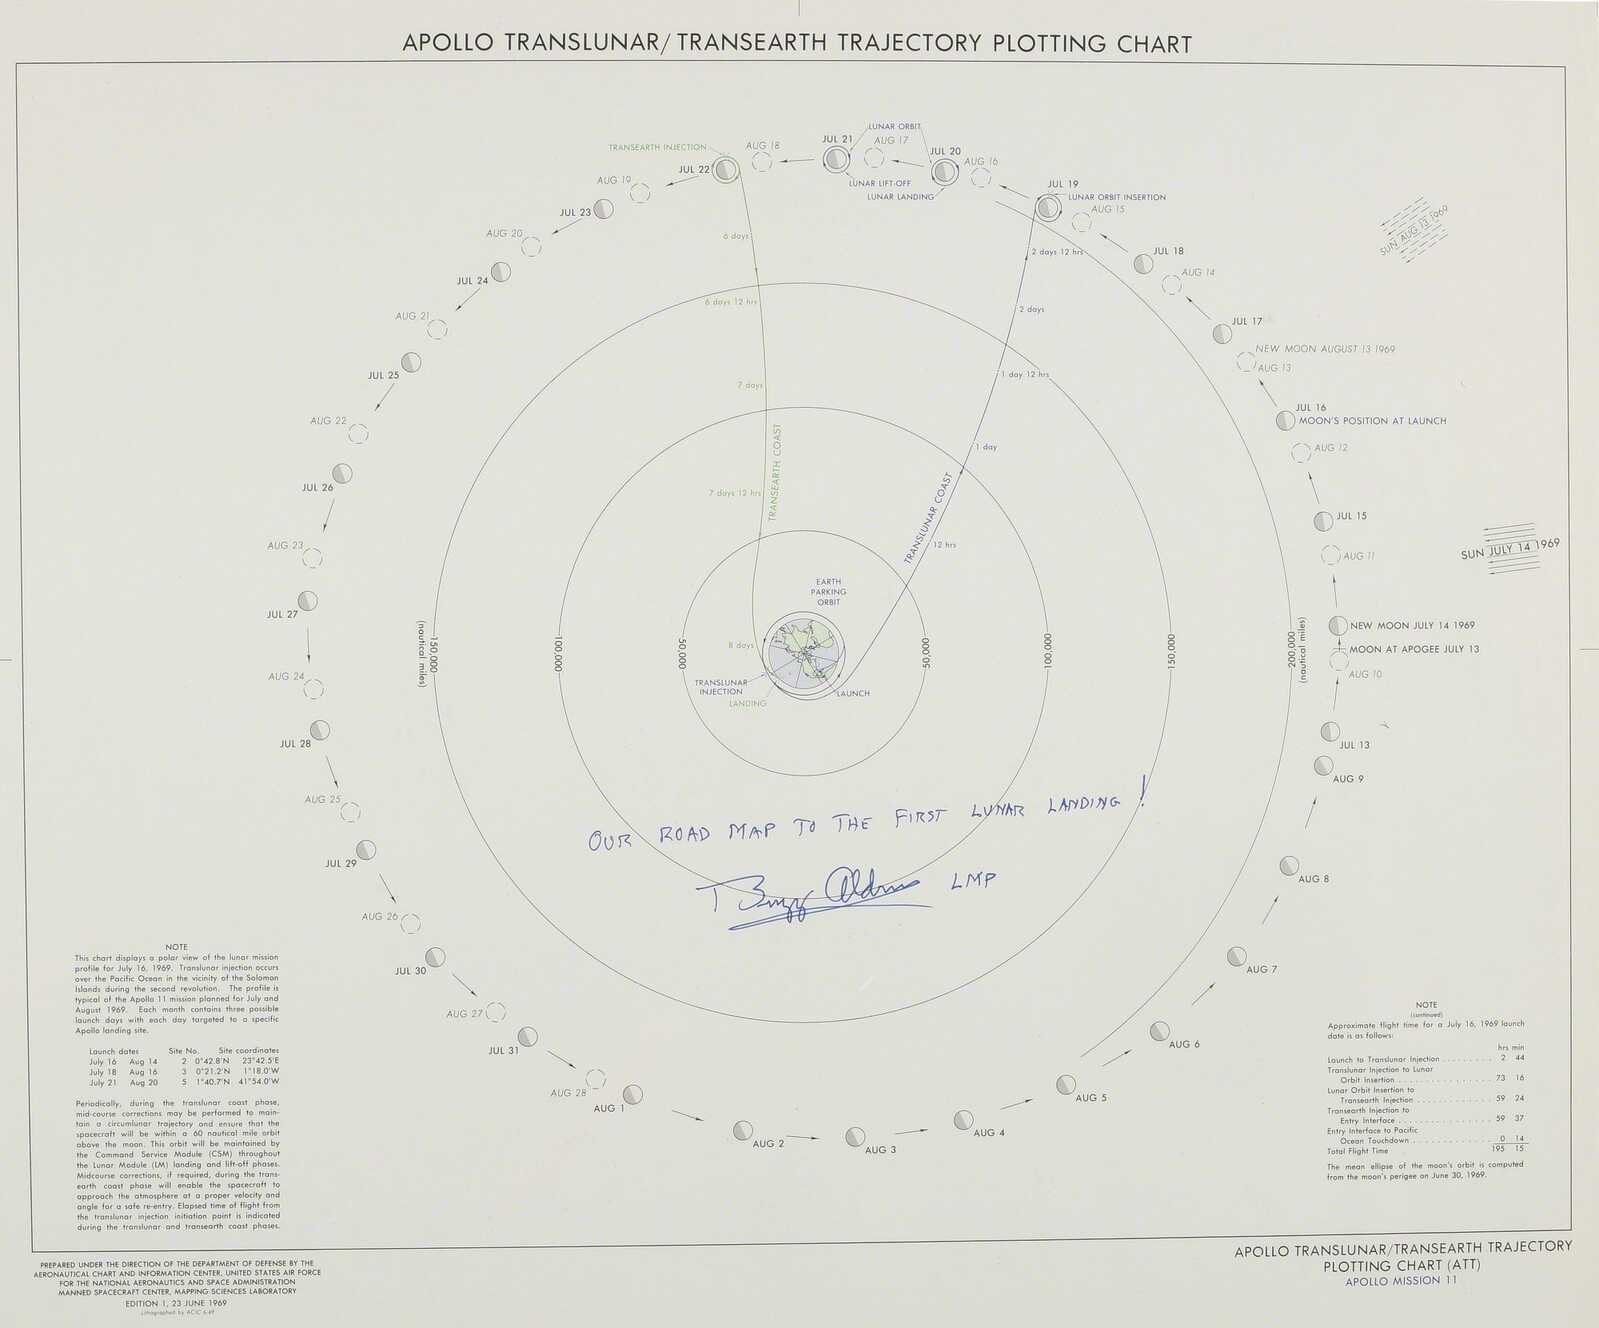 APOLLO TRANSLUNAR/TRANSEARTH TRAJECTORY PLOTTING CHART
TRANSEARTH INJECTION
JUL 22
AUG 18
JUL 21
LUNAR ORBIT
AUG 17
JUL 20
AUG 16
LUNAR LIFT-OFF
LUNAR LANDING
JUL 19
LUNAR ORBIT INSERTION
AUG 15
JUL 18
AUG 14
JUL 17
NEW MOON AUGUST 13 1969
AUG 13
JUL 16
MOON'S POSITION AT LAUNCH
AUG 12
JUL 15
AUG 11
NEW MOON JULY 14 1969
MOON AT APOGEE JULY 13
AUG 10
JUL 13
AUG 9
AUG 8
AUG 7
AUG 6
AUG 5
AUG 4
AUG 3
AUG 2
AUG 1
AUG 28
JUL 31
AUG 27
JUL 30
AUG 26
JUL 29
AUG 25
JUL 28
AUG 24
JUL 27
AUG 23
JUL 26
AUG 22
JUL 25
AUG 21
JUL 24
AUG 20
JUL 23
AUG 19
SUN AUG 13 1969
SUN JULY 14 1969
6 days
6 days 12 hrs
7 days
TRANSEARTH COAST
7 days 12 hrs
8 days
2 days 12 hrs
2 days
1 day 12 hrs
1 day
TRANSLUNAR COAST
12 hrs
EARTH
PARKING
ORBIT
TRANSLUNAR
INJECTION
LANDING
LAUNCH
(nautical miles)
150,000
100,000
50,000
50,000
100,000
150,000
200,000
(nautical miles)
OUR ROAD MAP TO THE FIRST LUNAR LANDING!
Buzz Aldrin LMP
NOTE
This chart displays a polar view of the lunar mission
profile for July 16, 1969. Translunar injection occurs
over the Pacific Ocean in the vicinity of the Solomon
Islands during the second revolution. The profile is
typical of the Apollo 11 mission planned for July and
August 1969. Each month contains three possible
launch days with each day targeted to a specific
Apollo landing site.
Launch dates Site No. Site coordinates
July 16 Aug 14 2 0°42.8'N 23°42.5'E
July 18 Aug 16 3 0°21.2'N 1°18.0'W
July 21 Aug 20 5 1°40.7'N 41°54.0'W
Periodically, during the translunar coast phase,
mid-course corrections may be performed to main-
tain a circumlunar trajectory and ensure that the
spacecraft will be within a 60 nautical mile orbit
above the moon. This orbit will be maintained by
the Command Service Module (CSM) throughout
the Lunar Module (LM) landing and lift-off phases.
Midcourse corrections, if required, during the trans-
earth coast phase will enable the spacecraft to
approach the atmosphere at a proper velocity and
angle for a safe re-entry. Elapsed time of flight from
the translunar injection initiation point is indicated
during the translunar and transearth coast phases.
NOTE
(continued)
Approximate flight time for a July 16, 1969 launch
date is as follows:
hrs min
Launch to Translunar Injection . . . . . . . . . 2 44
Translunar Injection to Lunar
Orbit Insertion . . . . . . . . . . . . . . . . . 73 16
Lunar Orbit Insertion to
Transearth Injection . . . . . . . . . . . . . 59 24
Transearth Injection to
Entry Interface . . . . . . . . . . . . . . . . . 59 37
Entry Interface to Pacific
Ocean Touchdown . . . . . . . . . . . . . . 0 14
Total Flight Time 195 15
The mean ellipse of the moon's orbit is computed
from the moon's perigee on June 30, 1969.
PREPARED UNDER THE DIRECTION OF THE DEPARTMENT OF DEFENSE BY THE
AERONAUTICAL CHART AND INFORMATION CENTER, UNITED STATES AIR FORCE
FOR THE NATIONAL AERONAUTICS AND SPACE ADMINISTRATION
MANNED SPACECRAFT CENTER, MAPPING SCIENCES LABORATORY
EDITION 1, 23 JUNE 1969
Lithographed by ACIC 6-69
APOLLO TRANSLUNAR/TRANSEARTH TRAJECTORY
PLOTTING CHART (ATT)
APOLLO MISSION 11